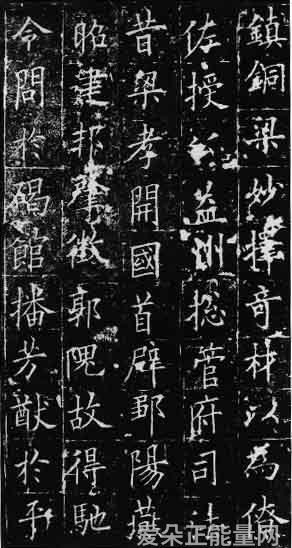 鎮銅梁妙擇奇材以為僚
佐授益州揔管府司法
昔梁孝開國首辟鄒陽燕
昭建邦肇徵郭隗故得馳
令問於碣館播芳猷於平
爱朵正能量网